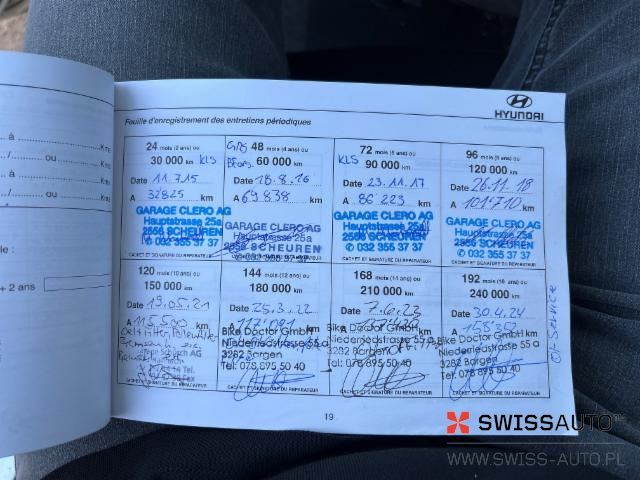 HYUNDAI
Feuille d'enregistrement des entretiens périodiques
24 mois (2 ans) ou
30 000 km KLS
Date 11.7.15
A 32825 km
GARAGE CLERO AG
Hauptstrasse 25a
2556 SCHEUREN
✆ 032 355 37 37
48 mois (4 ans) ou
60 000 km
Date 18.8.16
A 69838 km
GARAGE CLERO AG
Hauptstrasse 25a
2556 SCHEUREN
032 355 37 37
CACHET ET SIGNATURE DU REPARATEUR
72 mois (6 ans) ou
KLS 90 000 km
Date 23.11.17
A 86 223 km
GARAGE CLERO AG
Hauptstrasse 25a
2556 SCHEUREN
✆ 032 355 37 37
96 mois (8 ans) ou
120 000 km
Date 26.11.18
A 101710 km
GARAGE CLERO AG
Hauptstrasse 25a
2556 SCHEUREN
✆ 032 355 37 37
CACHET ET SIGNATURE DU REPARATEUR
120 mois (10 ans) ou
150 000 km
Date 19.05.21
A 115500 km
AG
Tel.
Fax
CACHET ET SIGNATURE DU REPARATEUR
144 mois (12 ans) ou
180 000 km
Date 25.3.22
A
Bike Doctor GmbH
Niederriedstrasse 55 a
3282 Bargen
Tel: 078 895 50 40
CACHET ET SIGNATURE DU REPARATEUR
168 mois (14 ans) ou
210 000 km
Date 7.6.23
A
Bike Doctor GmbH
Niederriedstrasse 55 a
3282 Bargen
Tel: 078 895 50 40
CACHET ET SIGNATURE DU REPARATEUR
192 mois (16 ans) ou
240 000 km
Date 30.4.24
A 148352 km
Bike Doctor GmbH
Niederriedstrasse 55 a
3282 Bargen
Tel: 078 895 50 40
CACHET ET SIGNATURE DU REPARATEUR
Service
19
à
ou
+ 2 ans
SWISSAUTO
WWW.SWISS-AUTO.PL